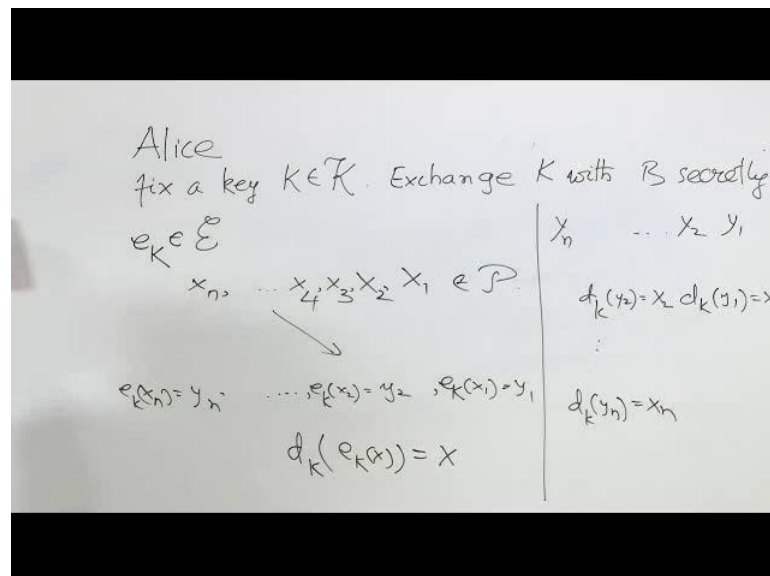 Alice
fix a key K ∈ 𝒦. Exchange K with B secretly
e_K ∈ ℰ
x_n, ... x_4, x_3, x_2, x_1 ∈ 𝒫.
e_k(x_n) = y_n. ...., e_k(x_2) = y_2, e_k(x_1) = y_1
d_k(e_k(x)) = x
y_n ... y_2 y_1
d_k(y_2) = x_2 d_k(y_1) =
⋮
d_k(y_n) = x_n